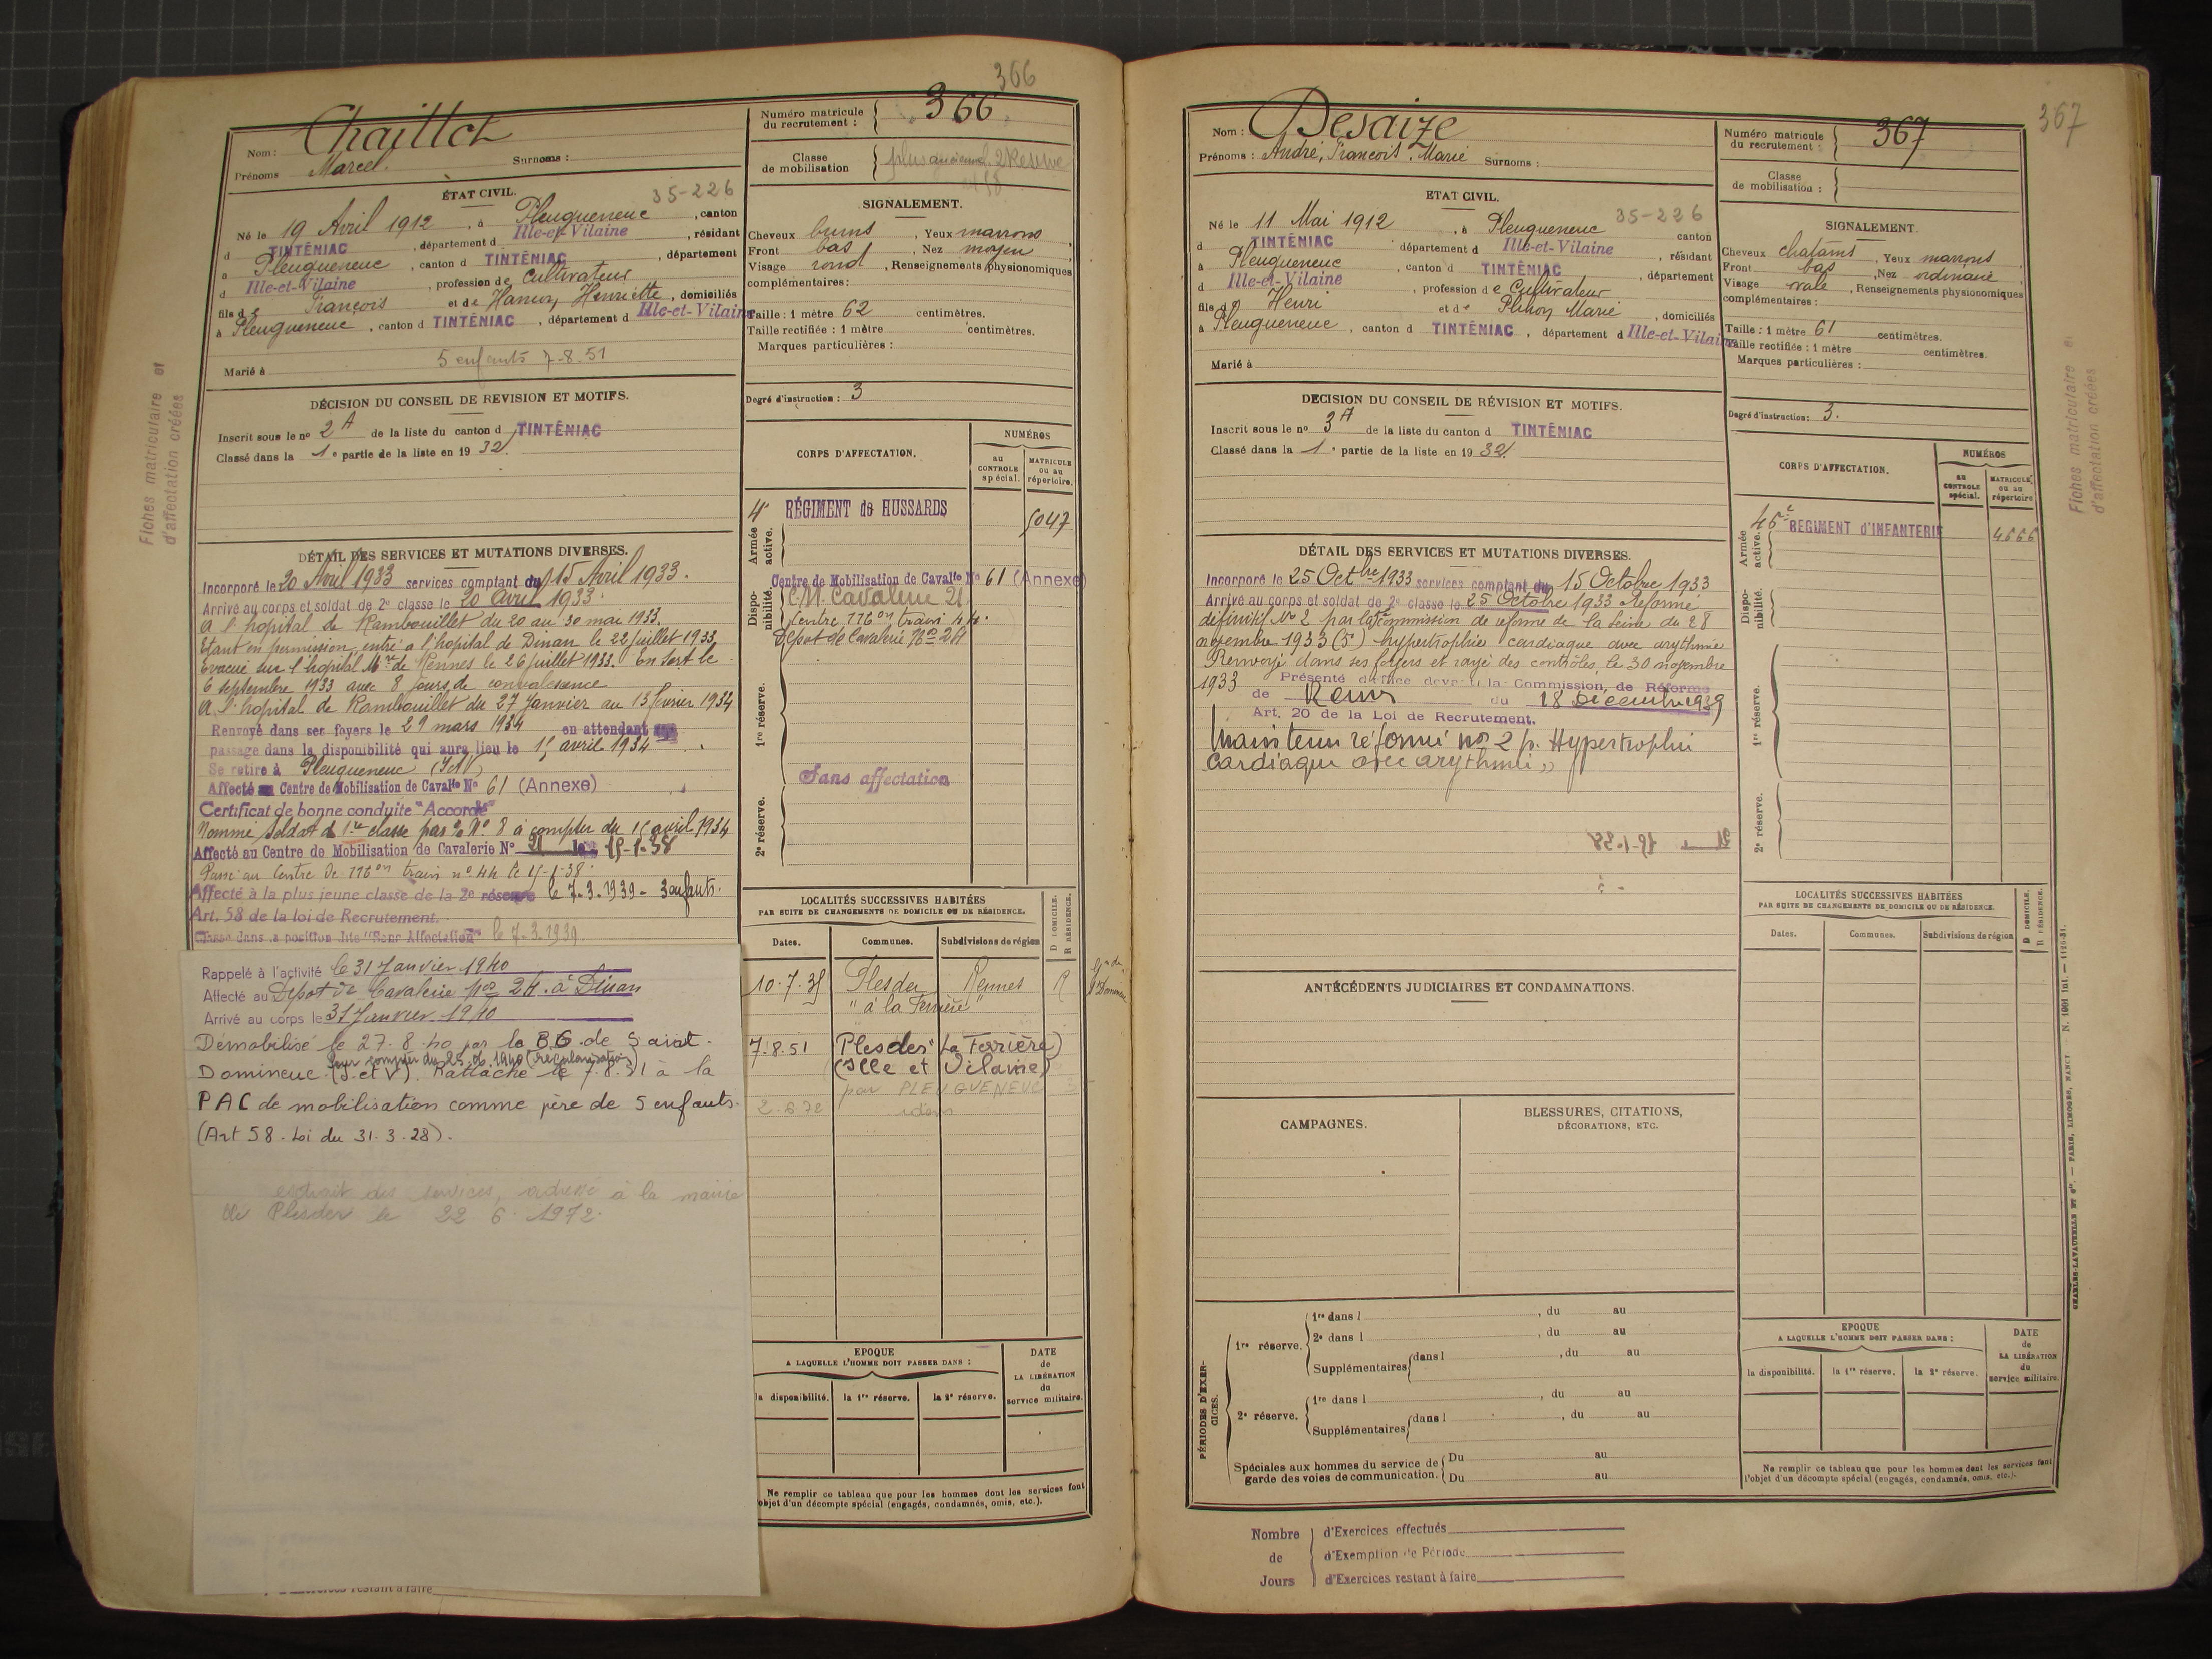 366
Nom : Chaillot
Prénoms Marcel. Surnoms :
Numéro matricule du recrutement : 366
Classe de mobilisation plus ancienne 2 Réserve
ÉTAT CIVIL. 35-226
Né le 19 Avril 1912, à Pleugueneuc, canton
d TINTÉNIAC, département d Ille-et-Vilaine, résidant
à Pleugueneuc, canton d TINTÉNIAC, département
d Ille-et-Vilaine, profession de Cultivateur
fils de François et de Hamon Henriette, domiciliés
à Pleugueneuc, canton d TINTÉNIAC, département d Ille-et-Vilaine
5 enfants 7-8-51
Marié à
SIGNALEMENT.
Cheveux bruns, Yeux marrons,
Front bas, Nez moyen,
Visage rond, Renseignements physionomiques
complémentaires :
Taille : 1 mètre 62 centimètres.
Taille rectifiée : 1 mètre centimètres.
Marques particulières :
Degré d'instruction : 3
DÉCISION DU CONSEIL DE REVISION ET MOTIFS.
Inscrit sous le no 2A de la liste du canton d TINTÉNIAC
Classé dans la 1e partie de la liste en 1932.
DÉTAIL DES SERVICES ET MUTATIONS DIVERSES.
Incorporé le 20 Avril 1933 services comptant du 15 Avril 1933.
Arrivé au corps et soldat de 2e classe le 20 avril 1933.
A l'hopital de Rambouillet du 20 au 30 mai 1933.
Etant en permission, entré à l'hopital de Dinan le 22 juillet 1933
Evacué sur l'hopital Mre de Rennes le 26 juillet 1933. En sort le
6 septembre 1933 avec 8 jours de convalescence
A l'hopital de Rambouillet du 27 Janvier au 13 février 1934
Renvoyé dans ses foyers le 29 mars 1934 en attendant
passage dans la disponibilité qui aura lieu le 15 avril 1934
Se retire à Pleugueneuc (I&V)
Affecté au Centre de Mobilisation de Cavalie No 61 (Annexe)
Certificat de bonne conduite "Accordé"
Nommé soldat de 1re classe par No 8 à compter du 15 avril 1934
Affecté au Centre de Mobilisation de Cavalerie No 21 le 15-1-38
Passé au Centre de 116on train no 44 le 15-1-38
Affecté à la plus jeune classe de la 2e réserve le 7.3.1939 - 3 enfants.
Art. 58 de la loi de Recrutement.
Classé dans la position dite "Sans Affectation" le 7-3-1939
Rappelé à l'activité le 31 Janvier 1940
Affecté au Dépôt de Cavalerie No 24 à Dinan
Arrivé au corps le 31 Janvier 1940
Démobilisé le 27-8-40 par la BG de Saint-
pour compter du 25.6.1940 (régularisation)
Domineuc (I et V). Rattaché le 7.8.51 à la
PAC de mobilisation comme père de 5 enfants.
(Art 58. Loi du 31.3.28).
extrait des services, adressé à la mairie
de Plesder le 22 6 1972.
CORPS D'AFFECTATION.
NUMÉROS
au CONTROLE spécial.
MATRICULE ou au répertoire.
Armée active.
4e RÉGIMENT de HUSSARDS 5047
Disponibilité.
Centre de Mobilisation de Cavalie No 61 (Annexe)
C.M. Cavalerie 21
Centre 116on train 44.
Dépôt de Cavalerie No 24
1re réserve.
Sans affectation
2e réserve.
LOCALITÉS SUCCESSIVES HABITÉES
PAR SUITE DE CHANGEMENTS DE DOMICILE OU DE RÉSIDENCE.
D DOMICILE. R RÉSIDENCE.
Dates. Communes. Subdivisions de région
10.7.35 Plesder Rennes R
"à la Ferrière"
7.8.51 Plesder (La Ferrière)
(Ille et Vilaine)
par PLEUGUENEUC
2.6.72 idem
EPOQUE
A LAQUELLE L'HOMME DOIT PASSER DANS :
DATE de LA LIBÉRATION du service militaire.
la disponibilité. la 1re réserve. la 2e réserve.
Ne remplir ce tableau que pour les hommes dont les services font
l'objet d'un décompte spécial (engagés, condamnés, omis, etc.).
Fiches matriculaire et
d'affectation créées
367
Nom : Desaize
Prénoms : André, François, Marie Surnoms :
Numéro matricule du recrutement : 367
Classe de mobilisation :
ETAT CIVIL. 35-226
Né le 11 Mai 1912, à Pleugueneuc canton
d TINTÉNIAC département d Ille-et-Vilaine, résidant
à Pleugueneuc, canton d TINTÉNIAC, département
d Ille-et-Vilaine, profession de Cultivateur
fils de Henri et de Plihon Marie, domiciliés
à Pleugueneuc, canton d TINTÉNIAC, département d Ille-et-Vilaine
Marié à
SIGNALEMENT.
Cheveux chatains, Yeux marrons,
Front bas, Nez ordinaire
Visage ovale, Renseignements physionomiques
complémentaires :
Taille : 1 mètre 61 centimètres.
Taille rectifiée : 1 mètre centimètres.
Marques particulières :
Degré d'instruction : 3.
DECISION DU CONSEIL DE RÉVISION ET MOTIFS.
Inscrit sous le no 3A de la liste du canton d TINTÉNIAC
Classé dans la 1e partie de la liste en 1932
DÉTAIL DES SERVICES ET MUTATIONS DIVERSES.
Incorporé le 25 Octbre 1933 services comptant du 15 Octobre 1933
Arrivé au corps et soldat de 2e classe le 25 Octobre 1933 Réformé
définitif No 2 par la Commission de réforme de la Seine du 28
novembre 1933 (5°) hypertrophie cardiaque avec arythmie
Renvoyé dans ses foyers et rayé des contrôles le 30 novembre
1933 Présenté d'office devant la Commission de Réforme
de Rennes du 18 Décembre 1939
Art. 20 de la Loi de Recrutement.
Maintenu réformé no 2 p. Hypertrophie
cardiaque avec arythmie »
CORPS D'AFFECTATION.
NUMÉROS
au CONTROLE spécial.
MATRICULE ou au répertoire
Armée active.
46e REGIMENT d'INFANTERIE 4666
Disponibilité.
1re réserve.
2e réserve.
LOCALITÉS SUCCESSIVES HABITÉES
PAR SUITE DE CHANGEMENTS DE DOMICILE OU DE RÉSIDENCE.
D DOMICILE. R RÉSIDENCE.
Dates. Communes. Subdivisions de région
ANTÉCÉDENTS JUDICIAIRES ET CONDAMNATIONS.
CAMPAGNES.
BLESSURES, CITATIONS,
DÉCORATIONS, ETC.
PÉRIODES D'EXERCICES.
1re réserve.
1re dans l , du au
2e dans l , du au
Supplémentaires dans l , du au
2e réserve.
1re dans l , du au
Supplémentaires dans l , du au
Spéciales aux hommes du service de garde des voies de communication.
Du au
Du au
EPOQUE
A LAQUELLE L'HOMME DOIT PASSER DANS :
DATE de LA LIBÉRATION du service militaire.
la disponibilité. la 1re réserve. la 2e réserve.
Ne remplir ce tableau que pour les hommes dont les services font
l'objet d'un décompte spécial (engagés, condamnés, omis, etc.).
Nombre de Jours
d'Exercices effectués
d'Exemption de Période
d'Exercices restant à faire
Fiches matriculaire et
d'affectation créées
CHARLES-LAVAUZELLE ET Cie. — PARIS, LIMOGES, NANCY